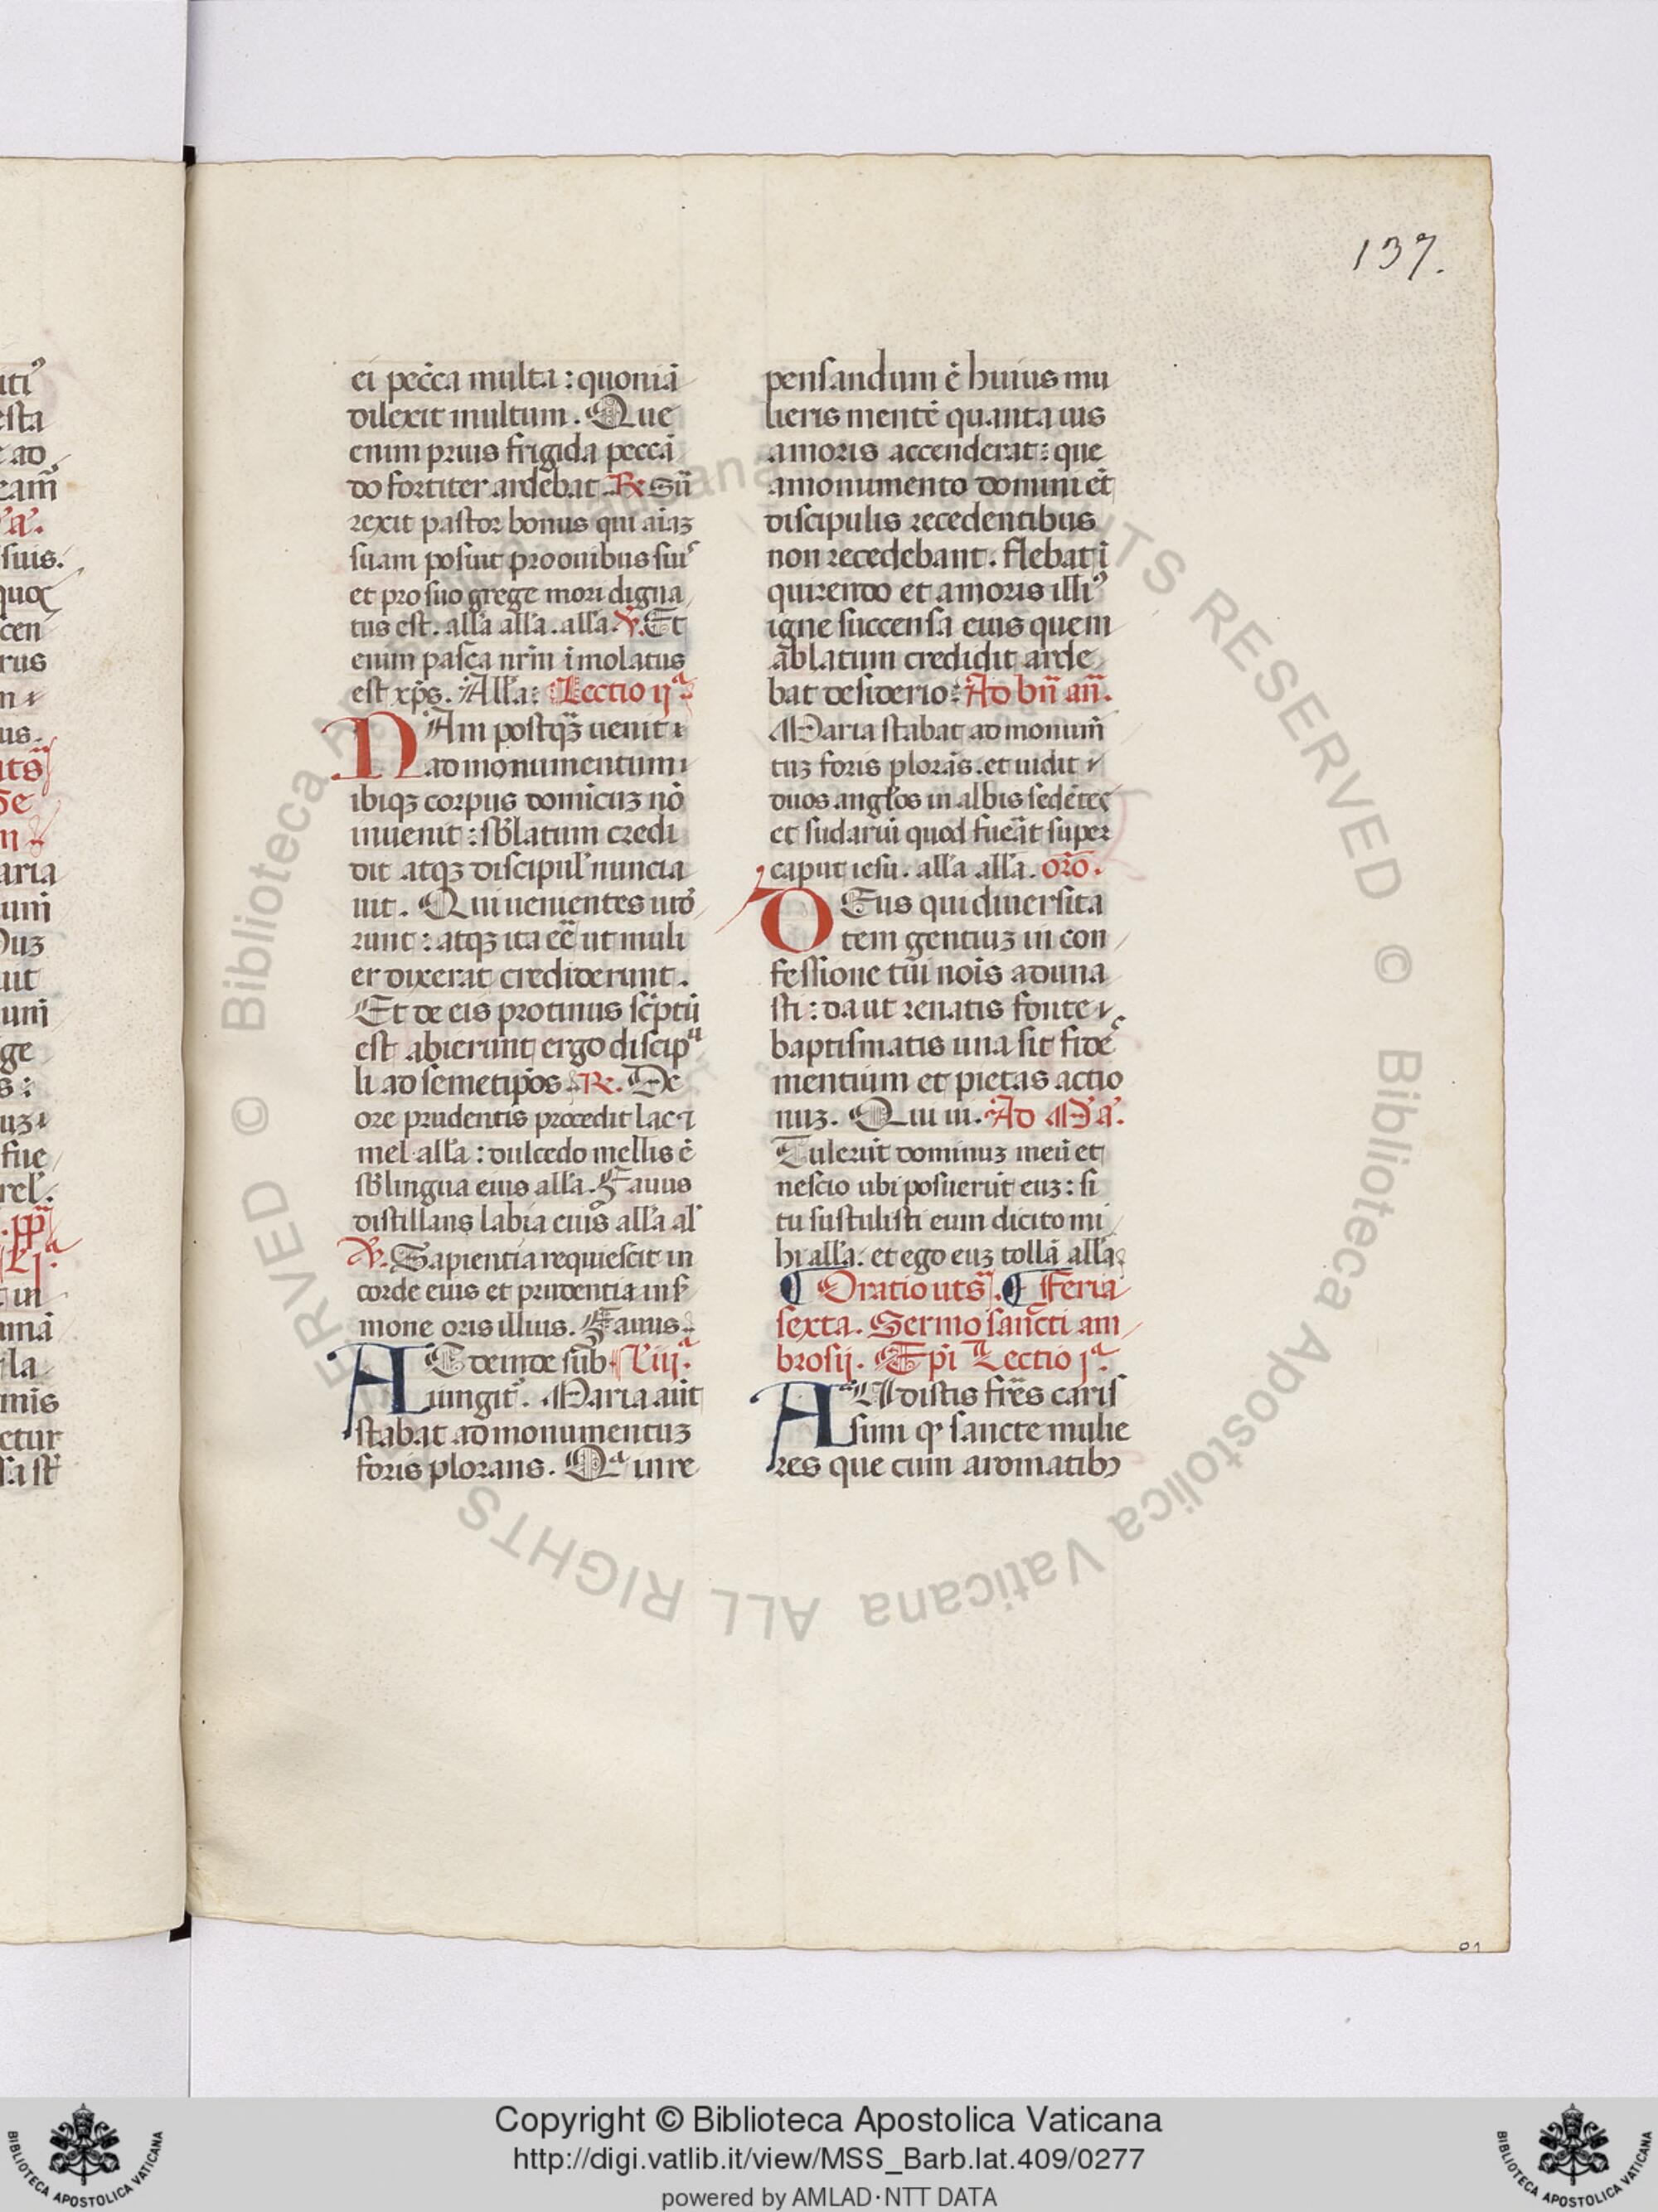 137.
ei pecca multa : quoniā
dilexit multum . Que
enim prius frigida peccā
do fortiter ardebat . R Sur̄
rexit pastor bonus qui aiaꝫ
suam posuit pro ouibus suis
et pro suo grege mori digna
tus est . alla alla . alla . V. Et
enim pasca nrm̄ īmolatus
est xp̄s . Alla : Lectio ijª.
NAm postqꝫ uenit
ad monumentum
ibiqꝫ corpus dominicuꝫ nō
inuenit : sblatum credi
dit atqꝫ discipul' nuncia
uit . Qui uenientes uide
runt : atqꝫ ita eē ut muli
er dixerat crediderunt .
Et de eis protinus sc̄ptū
est abierunt ergo discipu
li ad semetip̄os . R . De
ore prudentis procedit lac ⁊
mel alla : dulcedo mellis ē
sb lingua eius alla . Fauus
distillans labia eius alla al'
V. Sapientia requiescit in
corde eius et prudentia in s̄
mone oris illius . Fauus .
AT deinde sub L iijª.
iungit . Maria aūt
stabat ad monumentuꝫ
foris plorans . Qª in re
pensandum ē huius mu
lieris mentē quanta uis
amoris accenderat : que
a monumento domini et
discipulis recedentibus
non recedebant . flebat ī
quirendo et amoris illiꝰ
igne succensa eius quem
ablatum credidit arde
bat desiderio : Ad bn̄ an̄ .
Maria stabat ad monum̄
tuꝫ foris plorās . et uidit
duos anglos in albis sedētes
et sudariū quod fuerat super
caput iesu . alla alla . oro .
DEus qui diuersita
tem gentiuꝫ in con
fessione tui nois aduna
sti : da ut renatis fonte
baptismatis una sit fides
mentium et pietas actio
nuꝫ . Qui ui . Ad Mª.
Tulerūt dominuꝫ meū et
nescio ubi posuerūt euꝫ : si
tu sustulisti eum dicito mi
hi alla . et ego euꝫ tollā alla
¶ Oratio utsª. ¶ Feria
sexta . Sermo sancti am
brosij . Epi Lectio jª.
AUdistis frēs caris
sim qꝫ sancte mulie
res que cum aromatibꝫ
Copyright © Biblioteca Apostolica Vaticana
http://digi.vatlib.it/view/MSS_Barb.lat.409/0277
powered by AMLAD·NTT DATA